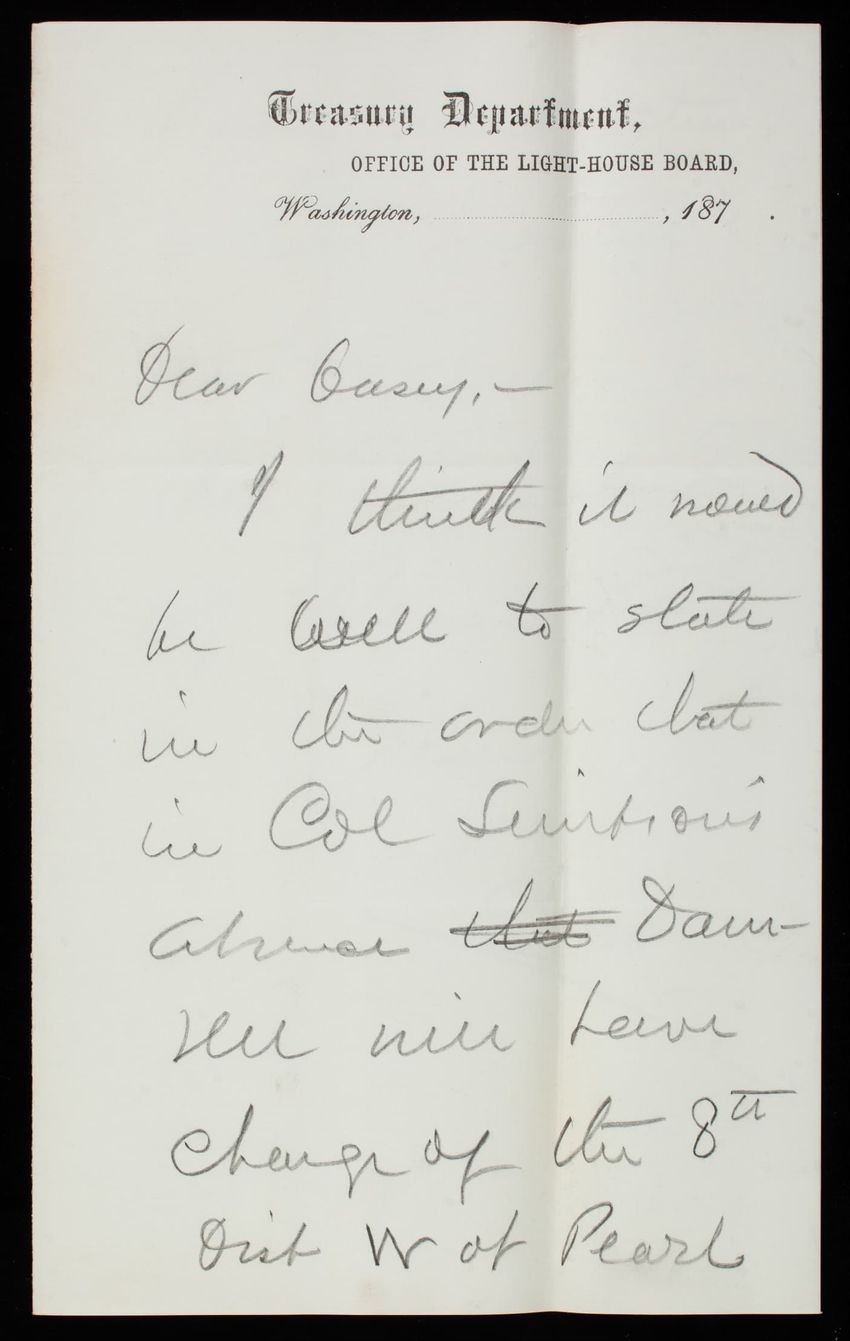 Treasury Department,
OFFICE OF THE LIGHT-HOUSE BOARD,
Washington, , 187 .
Dear Casey, —
I think it would
be well to state
in the order that
in Col Simpson's
absence that Dam-
rell will have
charge of the 8th
Dist W of Pearl